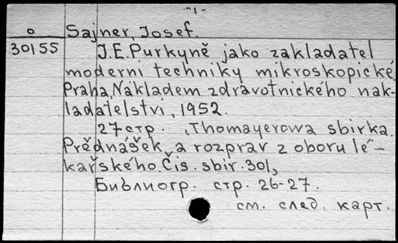 -1-
o Sajner, Josef.
30155 J.E.Purkyně jako zakladatel
moderni techniky mikroskopické
Praha, Nákladem zdravotnického nak-
ladatelstvi, 1952.
27 стр. „Thomayerowa sbirka
Prědnášek a rozprav z oboru lé-
kařského. Čis. sbir. 301,
Библиогр. стр. 26-27.
см. след. карт.